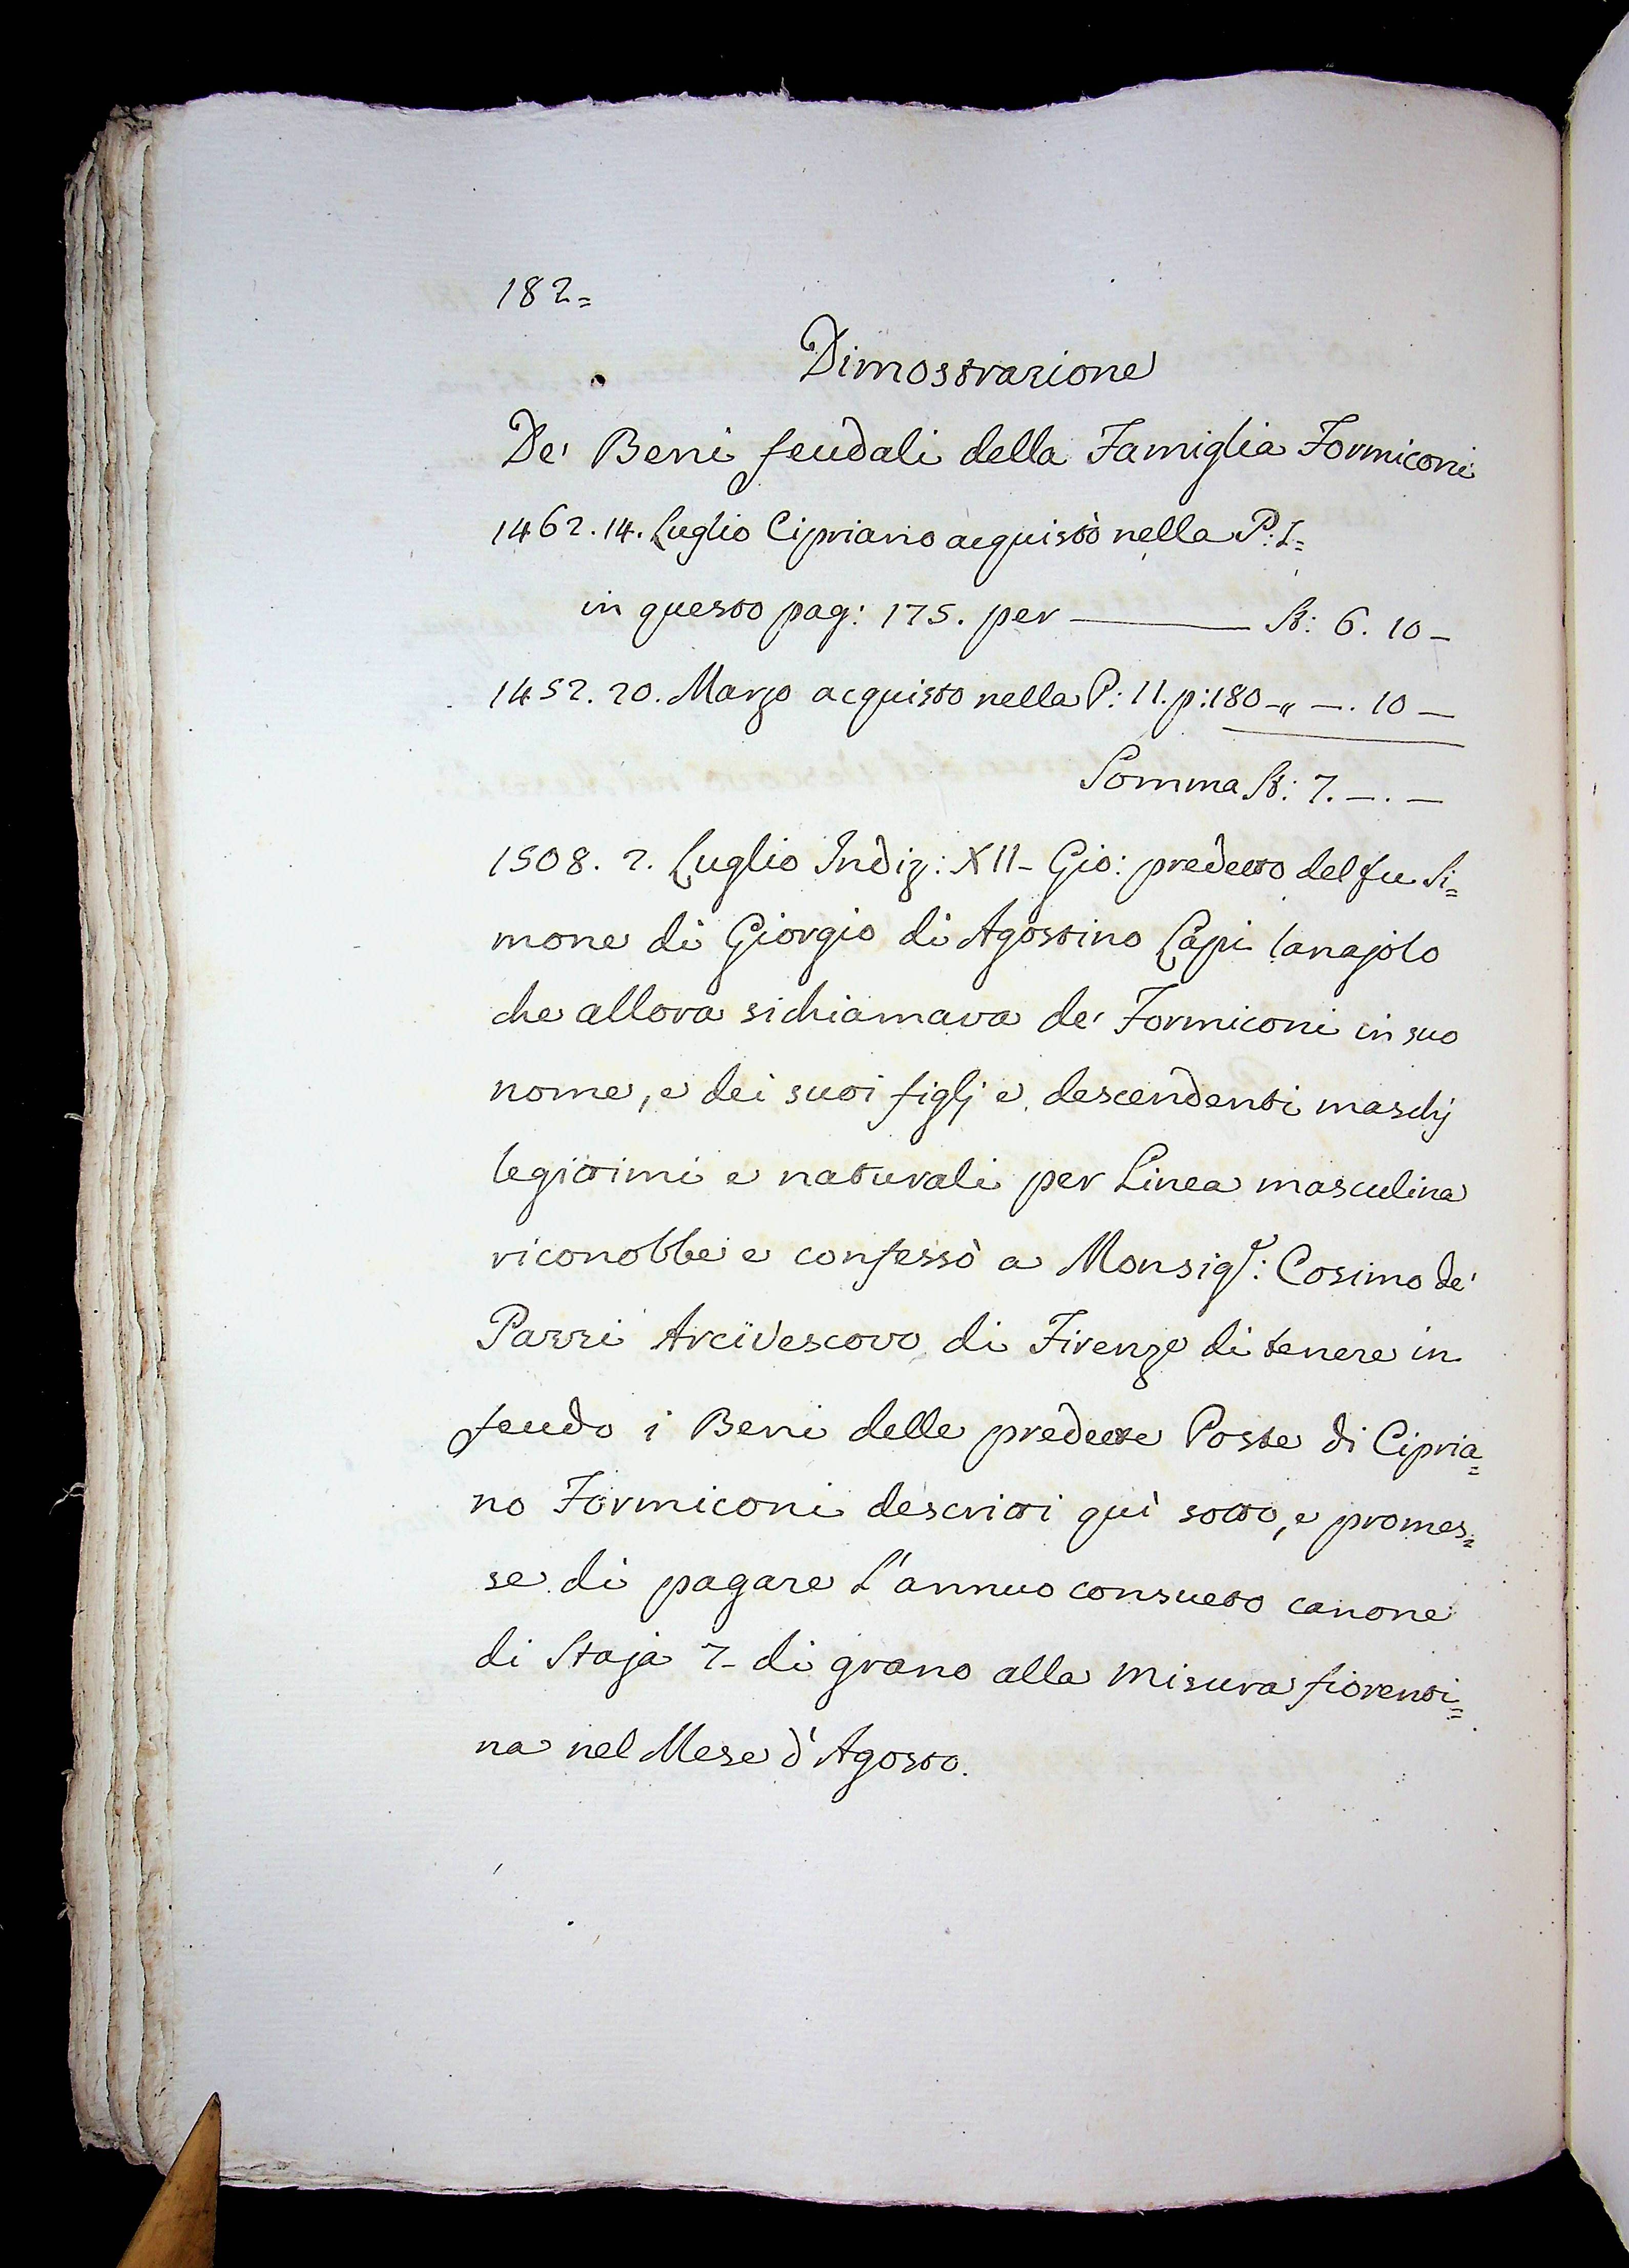 182=
Dimostrazione
De' Beni feudali della Famiglia Formiconi
1462. 14. Luglio Cipriano acquistò nella P: I=
in questo pag: 175. per ——— St: 6. 10 –
1452. 20. Marzo acquisto nella P: II. p: 180 –„ –. 10 –
Somma St: 7. –. –
1508. 2. Luglio Indiz: XII– Gio: predetto del fu Si=
mone di Giorgio di Agostino Lapi lanajolo
che allora si chiamava de' Formiconi in suo
nome, e dei suoi figlj e descendenti maschj
legittimi e naturali per Linea masculina
riconobbe e confessò a Monsigr: Cosimo de'
Pazzi Arcivescovo di Firenze di tenere in
feudo i Beni delle predette Poste di Cipria=
no Formiconi descritti quì sotto, e promes=
se di pagare L'annuo consueto canone
di Staja 7– di grano alla misura fiorenti=
na nel Mese d'Agosto.